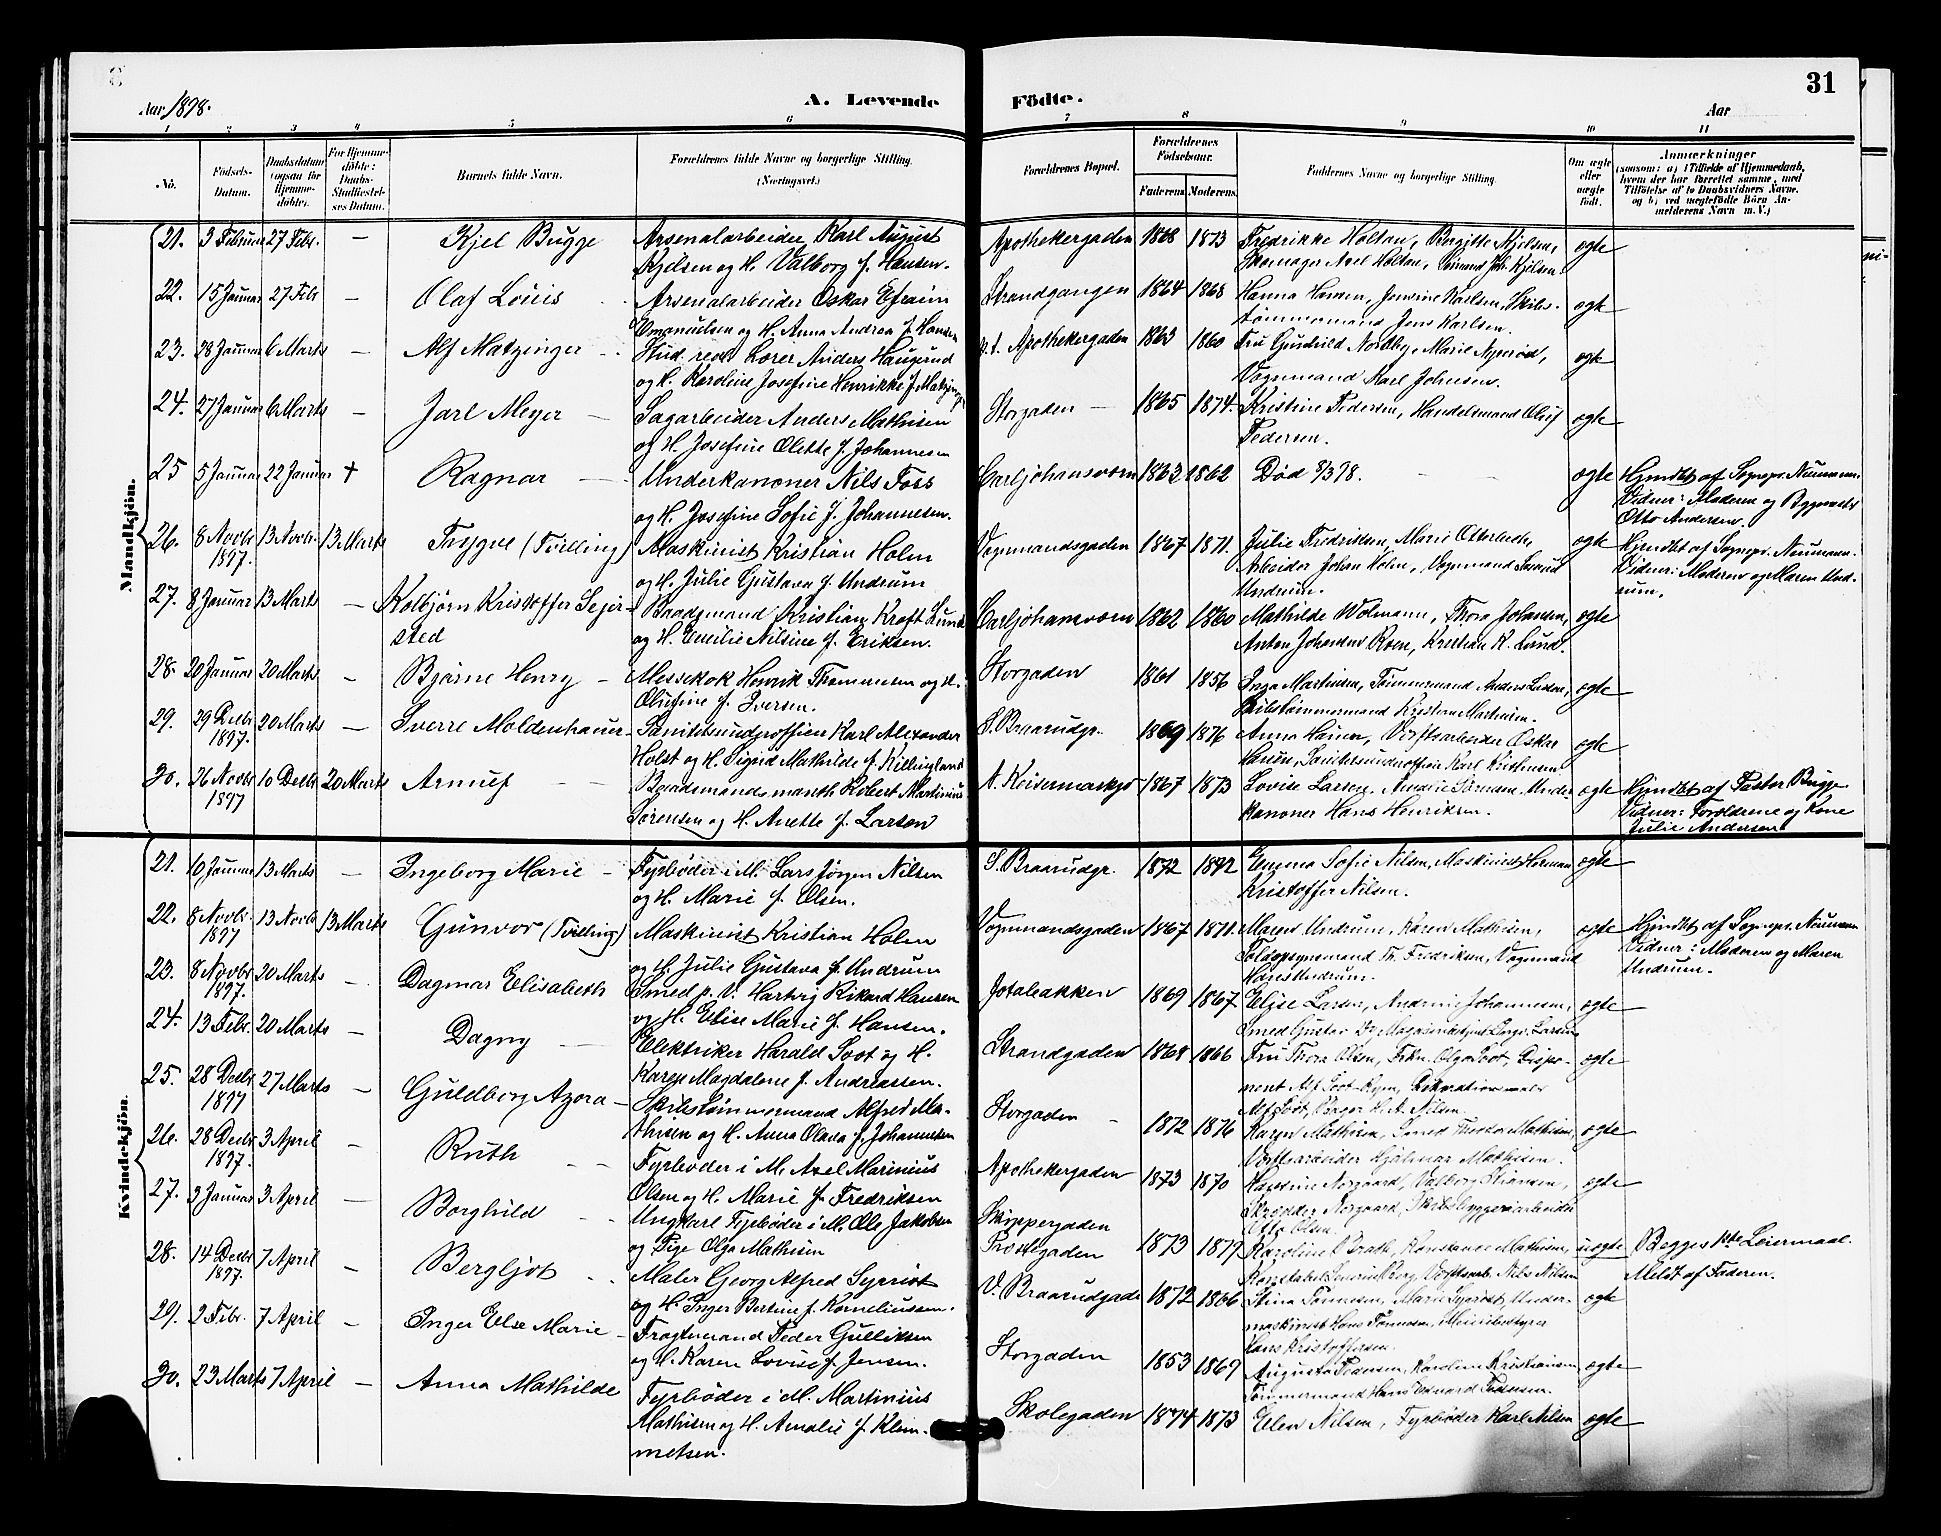 Aar 1898.
A. Levende
Födte.
Aar
31
1 2 3 4 5 6 7 8 9 10 11
No.
Födsels-Datum.
Daabsdatum (ogsaa for Hjemme-döbte).
For Hjemme-döbte: Daabs-Stadfæstel-ses Datum.
Barnets fulde Navn.
Forældrenes fulde Navne og borgerlige Stilling. (Næringsvei.)
Forældrenes Bopæl.
Forældrenes Födselsaar.
Faderens Moderens.
Faddernes Navne og borgerlige Stilling.
Om ægte eller uægte födt.
Anmærkninger
(saasom: a) i Tilfælde af Hjemmedaab, hvem der har forrettet samme, med Tilföielse af to Daabsvidners Navne. og b) ved uægtefödte Börn An-melderens Navn m. V.)
Mandkjön.
21. 3 Februar 27 Febr. — Kjel Bugge Arsenalarbeider Karl August
Kjelsen og H. Valborg f. Hansen. Apothekergaden 1868 1873 Fredrikke Holtan, Birgitte Kjelsen,
Skomager Axel Holtan, Joh. Kjelsen ægte
22. 15 Januar 27 Feb — Olaf Louis Arsenalarbeider Oskar Efraim
Emanuelsen og H. Anna Andrea f. Hansen Strandgangen 1864 1868 Hanna Hansen, Jensine Karlsen, Skibs-
tömmermand Jens Karlsen. ægte
23. 28 Januar 6 Marts — Alf Matzinger Stud. real. Lærer Anders Haugerud
og H. Karoline Josefine Henrikke f. Matzinger p.t. Apothekergaden 1863 1860 Fru Gunhild Nordby, Marie Nyseröd,
Vognmand Karl Johnsen. ægte
24. 27 Januar 6 Marts — Jarl Meyer — Sagarbeider Anders Mathisen
og H. Josefine Olette f. Johannesen Storgaden — 1865 1874. Kristine Pedersen, Handelsmand Oluf
Pedersen. ægte
25 5 Januar 22 Januar + Ragnar — Underkanoner Nils Foss
og H. Josefine Sofie f. Johannesen. Carljohansværn 1863 1862 Död 8/3 98. ægte Hjemdöbt af Sognepr. Neumann.
Vidner: Moderen og Bygmester
Otto Andersen.
26. 8 Novbr. 1897. 13 Novbr. 13 Marts Trygve (Tvilling) Maskinist Kristian Holm
og H. Julie Gustava f. Undrum Vognmandsgaden 1867 1871. Julie Fredriksen, Marie Otterbech,
Arbeider Johan Holm, Vognmand
Undrum. ægte Hjemdöbt af Sognepr. Neumann.
Vidner: Moderen og Maren Und-
rum.
27. 8 Januar 13 Marts — Kolbjörn Kristoffer Sejer-
sted Baadsmand Kristian Kraft Lund
og H. Emilie Nilsine f. Eriksen. Carljohansværn 1862 1860 Mathilde Wolmann, Thora Johansen,
Anton Johansen Roen, Kristian K. Lund. ægte
28. 20 Januar 20 Marts — Bjarne Henry — Messekok Henrik Thommesen og H.
Olufine f. Iversen. Storgaden 1861 1856 Inga Martinsen, Tömmermand Anders Larsen,
Skibstömmermand Kristian Martinsen. ægte
29. 29 Decbr. 1897. 20 Marts — Sverre Moldenhauer Sanitetsunderofficer Karl Alexander
Holst og H. Sigrid Mathilde f. Killingland S. Braarudgr. 1869 1876 Anna Hansen, Værftsarbeider Oskar
Hansen, Sanitetsunderofficer Karl Kristensen ægte
30. 26 Novbr 1897 10 Decbr 20 Marts Arnulf — Baadsmandsmath Robert Martinius
Sörensen og H. Anette f. Larsen A. Keisemarkgd 1867 1873 Lovise Larsen, Sörensen, Under-
kanoner Hans Henriksen. ægte Hjemdöbt af Pastor Bugge
Vidner: Forældrene og Kone
Julie Andersen
Kvindekjön.
21. 10 Januar 13 Marts — Ingeborg Marie — Fyrböder i M. Lars Jörgen Nilsen
og H. Marie f. Olsen. S. Braarudgr. 1872 1872 Emma Sofie Nilsen, Maskinist Herman
Kristoffer Nilsen. ægte
22. 8 Novbr. 1897 13 Novbr 13 Marts Gunvor (Tvilling) Maskinist Kristian Holm
og H. Julie Gustava f. Undrum Vognmandsgaden 1867 1871. Maren Undrum, Karen Mathisen,
Toldopsynsmand Th. Fredriksen, Vognmand
Hans Undrum. ægte Hjemdöbt af Sognepr. Neumann
Vidner: Moderen og Maren
Undrum.
23. 8 Novbr 1897. 20 Marts — Dagmar Elisabeth Smed p. V. Hartvig Rikard Hansen
og H. Elise Marie f. Hansen. Jotabakken 1869 1867. Elise Larsen, Andrine Johannesen,
Smed Gustav Larsen ægte
24. 13 Febr. 20 Marts — Dagny — Elektriker Harald Soot og H.
Karen Magdalene f. Andreassen. Strandgaden 1868 1866 Fru Thora Olsen, Frkn. Olga Soot, Dispo-
nent Alf Soot-Ryen, Dekorationsmaler
Alf Soot, Bager H. A. Nilsen. ægte
25. 28 Decbr 1897 27 Marts — Guldborg Azora — Skibstömmermand Alfred Ma-
thisen og H. Anna Olava f. Johannesen Storgaden — 1872 1876 Karen Mathisen, Smed Theodor Mathisen,
Værftsarbeider Hjalmar Mathisen. ægte
26. 28 Decbr 1897. 3 April — Ruth — Fyrböder i M. Axel Marinius
Olsen og H. Marie f. Fredriksen Apothekergaden 1873 1870 Norgaard, Valborg
Skrædder Norgaard, Skibsbyggeriarbeider
Otto Olsen. ægte
27. 3 Januar 3 April — Borghild — Ungkarl Fyrböder i M. Ole Jakobsen
og Pige Olga Mathisen Skippergaden
Prostegaden 1873 1879 Karoline Brath, Konstance Mathisen,
Konstabel Berg, Værftsarb. Nils Nilsen uægte Begges 1ste Leiermaal.
Meldt af Faderen.
28. 14 Decbr 1897. 7 April — Bergljot Maler Georg Alfred Syrrist
og H. Inger Bertine f. Korneliussen. V. Braarudgade 1872 1866 Stina Tönnesen, Marie Syrrist, Under-
maskinist Hans Tönnesen, Meieribestyrer
Hans Kristoffersen. ægte
29. 2 Febr. 7 April — Inger Else Marie — Fragtemand Peder Gulliksen
og H. Karen Lovise f. Jensen. Storgaden 1853 1869 Augusta Pedersen, Karoline Kristiansen
Tömmermand Hans Edvard Pedersen. ægte
30. 23 Marts 7 April — Anna Mathilde Fyrböder i M. Martinius
Mathisen og H. Amalie f. Klem-
metsen. Skolegaden 1874 1873 Ellen Nilsen, Fyrböder Karl Nilsen ægte